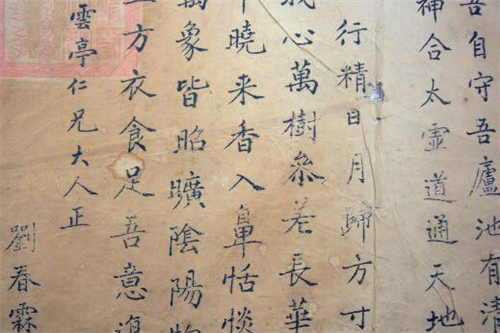 吾自守吾廬池有清
神合太虛道通天地
行精日月歸方寸
我心萬樹叅差長華
曉来香入鼻恬惔
萬象皆昭曠陰陽
方衣食足善意復
雲亭仁兄大人正
劉春霖